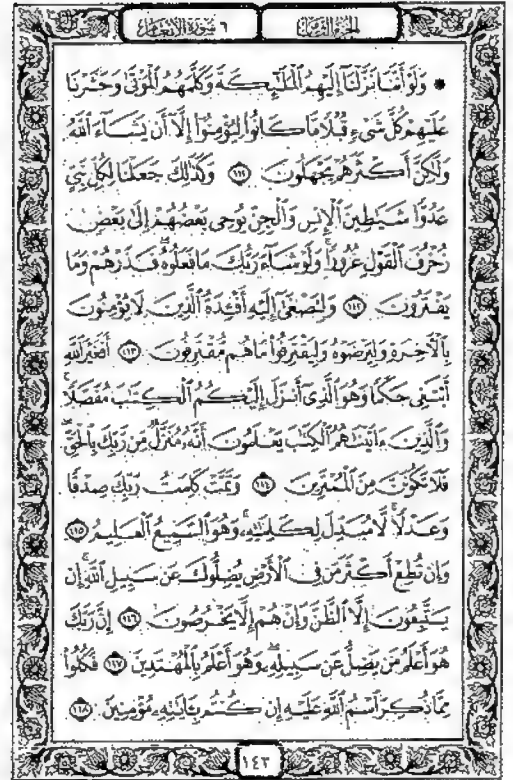 الجزء الثامن
٦ سورة الأنعام
۞ وَلَوْ أَنَّنَا نَزَّلْنَا إِلَيْهِمُ ٱلْمَلَٰٓئِكَةَ وَكَلَّمَهُمُ ٱلْمَوْتَىٰ وَحَشَرْنَا
عَلَيْهِمْ كُلَّ شَىْءٍ قُبُلًا مَّا كَانُوا۟ لِيُؤْمِنُوٓا۟ إِلَّآ أَن يَشَآءَ ٱللَّهُ
وَلَٰكِنَّ أَكْثَرَهُمْ يَجْهَلُونَ ١١١ وَكَذَٰلِكَ جَعَلْنَا لِكُلِّ نَبِىٍّ
عَدُوًّا شَيَٰطِينَ ٱلْإِنسِ وَٱلْجِنِّ يُوحِى بَعْضُهُمْ إِلَىٰ بَعْضٍ
زُخْرُفَ ٱلْقَوْلِ غُرُورًا ۚ وَلَوْ شَآءَ رَبُّكَ مَا فَعَلُوهُ ۖ فَذَرْهُمْ وَمَا
يَفْتَرُونَ ١١٢ وَلِتَصْغَىٰٓ إِلَيْهِ أَفْـِٔدَةُ ٱلَّذِينَ لَا يُؤْمِنُونَ
بِٱلْءَاخِرَةِ وَلِيَرْضَوْهُ وَلِيَقْتَرِفُوا۟ مَا هُم مُّقْتَرِفُونَ ١١٣ أَفَغَيْرَ ٱللَّهِ
أَبْتَغِى حَكَمًا وَهُوَ ٱلَّذِىٓ أَنزَلَ إِلَيْكُمُ ٱلْكِتَٰبَ مُفَصَّلًا ۚ
وَٱلَّذِينَ ءَاتَيْنَٰهُمُ ٱلْكِتَٰبَ يَعْلَمُونَ أَنَّهُۥ مُنَزَّلٌ مِّن رَّبِّكَ بِٱلْحَقِّ ۖ
فَلَا تَكُونَنَّ مِنَ ٱلْمُمْتَرِينَ ١١٤ وَتَمَّتْ كَلِمَتُ رَبِّكَ صِدْقًا
وَعَدْلًا ۚ لَّا مُبَدِّلَ لِكَلِمَٰتِهِۦ ۚ وَهُوَ ٱلسَّمِيعُ ٱلْعَلِيمُ ١١٥
وَإِن تُطِعْ أَكْثَرَ مَن فِى ٱلْأَرْضِ يُضِلُّوكَ عَن سَبِيلِ ٱللَّهِ ۚ إِن
يَتَّبِعُونَ إِلَّا ٱلظَّنَّ وَإِنْ هُمْ إِلَّا يَخْرُصُونَ ١١٦ إِنَّ رَبَّكَ
هُوَ أَعْلَمُ مَن يَضِلُّ عَن سَبِيلِهِۦ ۖ وَهُوَ أَعْلَمُ بِٱلْمُهْتَدِينَ ١١٧ فَكُلُوا۟
مِمَّا ذُكِرَ ٱسْمُ ٱللَّهِ عَلَيْهِ إِن كُنتُم بِـَٔايَٰتِهِۦ مُؤْمِنِينَ ١١٨
١٤٣